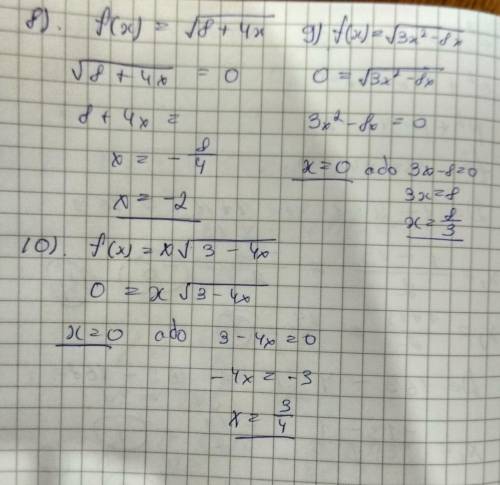 8). f(x) = √(8 + 4x)
√(8 + 4x) = 0
8 + 4x =
x = - 8/4
x = -2
9) f(x) = √(3x² - 8x)
0 = √(3x² - 8x)
3x² - 8x = 0
x = 0 або 3x - 8 = 0
3x = 8
x = 8/3
10). f(x) = x√(3 - 4x)
0 = x√(3 - 4x)
x = 0 або 3 - 4x = 0
-4x = -3
x = 3/4